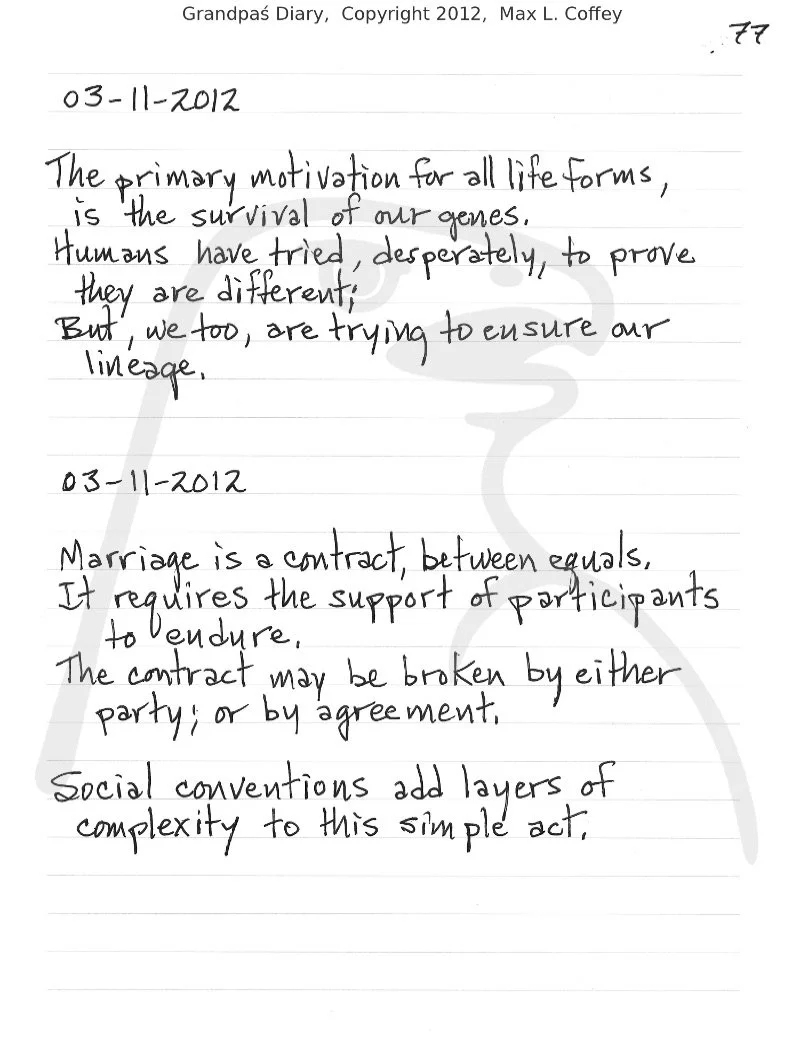 Grandpaś Diary, Copyright 2012, Max L. Coffey
77
03-11-2012
The primary motivation for all life forms,
is the survival of our genes.
Humans have tried, desperately, to prove
they are different;
But, we too, are trying to ensure our
lineage.
03-11-2012
Marriage is a contract, between equals.
It requires the support of participants
to endure.
The contract may be broken by either
party; or by agreement.
Social conventions add layers of
complexity to this simple act.